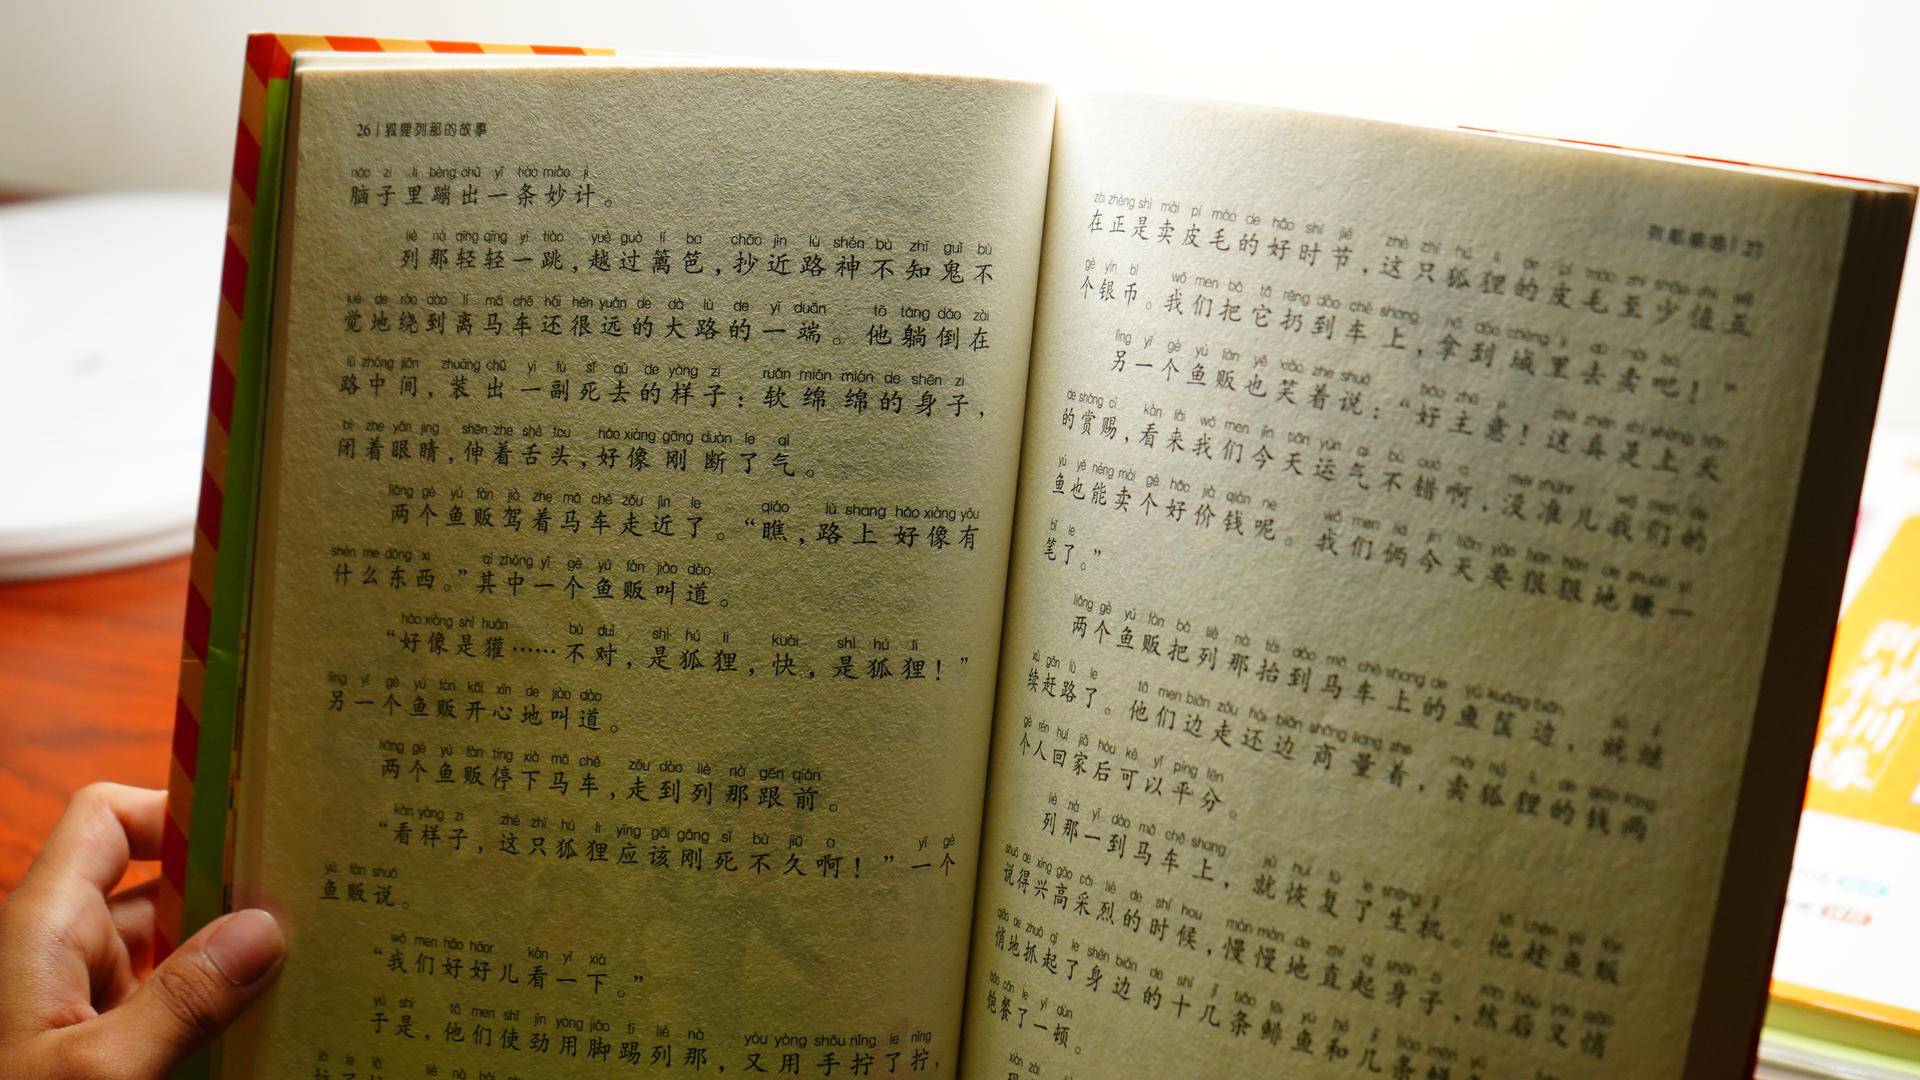 26 | 狐狸列那的故事
nǎo zi li bèng chū yī tiáo miào jì
脑子里蹦出一条妙计。
liè nà qīng qīng yī tiào yuè guò lí ba chāo jìn lù shén bù zhī guǐ bù
列那轻轻一跳,越过篱笆,抄近路神不知鬼不
jué de rào dào lí mǎ chē hái hěn yuǎn de dà lù de yī duān tā tǎng dǎo zài
觉地绕到离马车还很远的大路的一端。他躺倒在
lù zhōng jiān zhuāng chū yī fù sǐ qù de yàng zi ruǎn mián mián de shēn zi
路中间,装出一副死去的样子:软绵绵的身子,
bì zhe yǎn jing shēn zhe shé tou hǎo xiàng gāng duàn le qì
闭着眼睛,伸着舌头,好像刚断了气。
liǎng gè yú fàn jià zhe mǎ chē zǒu jìn le qiáo lù shang hǎo xiàng yǒu
两个鱼贩驾着马车走近了。“瞧,路上好像有
shén me dōng xi qí zhōng yī gè yú fàn jiào dào
什么东西。”其中一个鱼贩叫道。
hǎo xiàng shì huān bù duì shì hú li kuài shì hú li
“好像是獾……不对,是狐狸,快,是狐狸!”
lìng yī gè yú fàn kāi xīn de jiào dào
另一个鱼贩开心地叫道。
liǎng gè yú fàn tíng xià mǎ chē zǒu dào liè nà gēn qián
两个鱼贩停下马车,走到列那跟前。
kàn yàng zi zhè zhī hú li yīng gāi gāng sǐ bù jiǔ a yī gè
“看样子,这只狐狸应该刚死不久啊!”一个
yú fàn shuō
鱼贩说。
wǒ men hǎo hāor kàn yī xià
“我们好好儿看一下。”
yú shì tā men shǐ jìn yòng jiǎo tī liè nà yòu yòng shǒu nǐng le nǐng
于是,他们使劲用脚踢列那,又用手拧了拧,
27
zài zhèng shì mài pí máo de hǎo shí jié zhè zhī hú li de pí máo zhì shǎo zhí wǔ
在正是卖皮毛的好时节,这只狐狸的皮毛至少值五
gè yín bì wǒ men bǎ tā rēng dào chē shang ná dào chéng li qù mài ba
个银币。我们把它扔到车上,拿到城里去卖吧!”
lìng yī gè yú fàn yě xiào zhe shuō hǎo zhǔ yi zhè zhēn shì shàng tiān
另一个鱼贩也笑着说:“好主意!这真是上天
de shǎng cì kàn lái wǒ men jīn tiān yùn qi bù cuò a méi zhǔnr wǒ men de
的赏赐,看来我们今天运气不错啊,没准儿我们的
yú yě néng mài gè hǎo jià qián ne wǒ men liǎ jīn tiān yào hěn hěn de zhuàn yī
鱼也能卖个好价钱呢。我们俩今天要狠狠地赚一
bǐ le
笔了。”
liǎng gè yú fàn bǎ liè nà tái dào mǎ chē shang de yú kuāng biān jiù jì
两个鱼贩把列那抬到马车上的鱼筐边,就继
xù gǎn lù le tā men biān zǒu hái biān shāng liang zhe mài hú li de qián liǎng
续赶路了。他们边走还边商量着,卖狐狸的钱两
gè rén huí jiā hòu kě yǐ píng fēn
个人回家后可以平分。
liè nà yī dào mǎ chē shang jiù huī fù le shēng jī tā chèn yú fàn
列那一到马车上,就恢复了生机。他趁鱼贩
shuō de xìng gāo cǎi liè de shí hou màn màn de zhí qǐ shēn zi rán hòu yòu qiāo
说得兴高采烈的时候,慢慢地直起身子,然后又悄
qiāo de zhuā qǐ le shēn biān de shí jǐ tiáo fēi yú hé jǐ tiáo mán yú
悄地抓起了身边的十几条鲱鱼和几条鳗
bǎo cān le yī dùn
饱餐了一顿。
xiàn zài